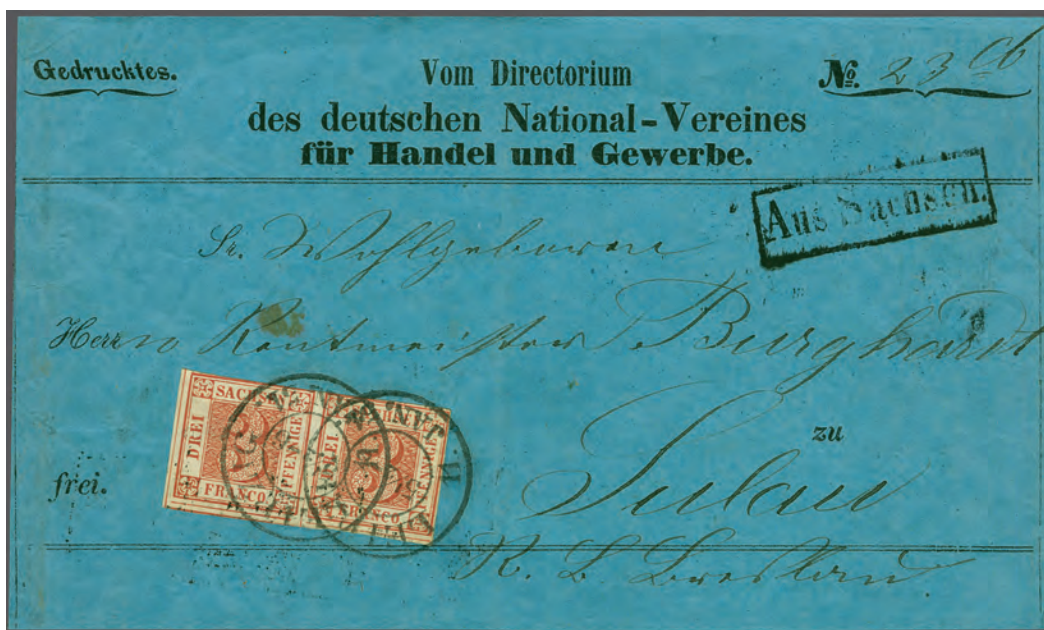 Gedrucktes.
Vom Directorium
№. 23
des deutschen National-Vereines
für Handel und Gewerbe.
Aus Sachsen.
Sr. Wohlgeboren
Herrn Rentmeister Burghardt
zu
Sulau
frei.
R. B. Breslau
SACHSEN
DREI
PFENNIGE
FRANCO
3
PFENNIGE
FRANCO
3